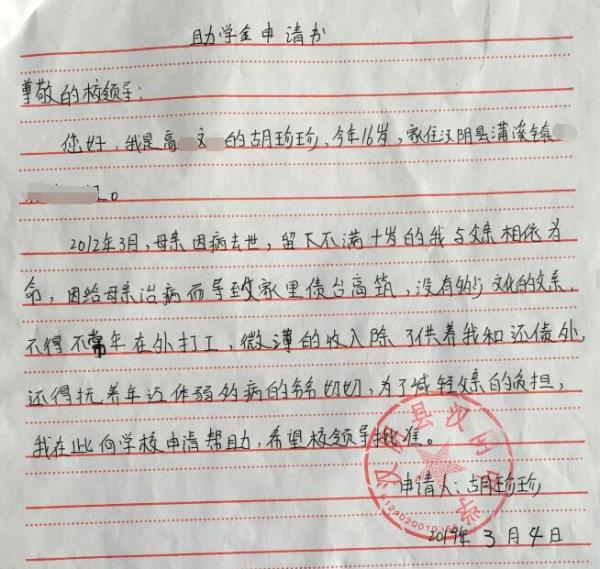 助学金申请书
尊敬的校领导:
您好,我是高 文 的胡珍珍,今年16岁,家住汉阴县蒲溪镇
。
2012年3月,母亲因病去世,留下不满十岁的我与父亲相依为
命,因给母亲治病而导致家里债台高筑,没有多少文化的父亲
不得不常年在外打工,微薄的收入除了供养我和还债外,
还得抚养年迈体弱多病的爷爷奶奶,为了减轻父亲的负担,
我在此向学校申请帮助,希望校领导批准。
汉阴县汉
申请人:胡珍珍
2019年3月4日